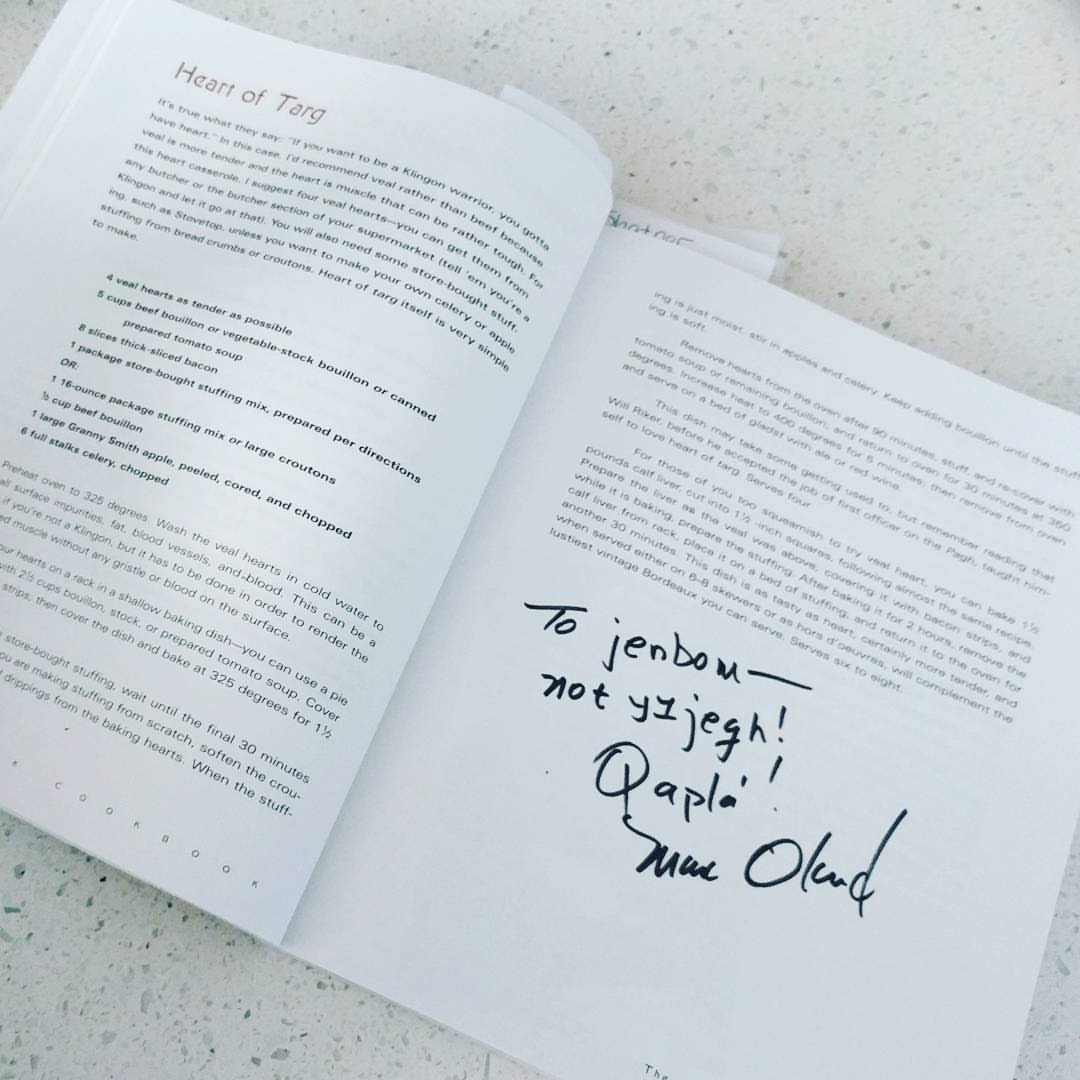 Heart of Targ
It's true what they say: "If you want to be a Klingon warrior, you gotta
have heart." In this case, I'd recommend veal rather than beef because
veal is more tender and the heart is muscle that can be rather tough. For
this heart casserole, I suggest four veal hearts—you can get them from
any butcher or the butcher section of your supermarket (tell 'em you're a
Klingon and let it go at that). You will also need some store-bought stuff-
ing, such as Stovetop, unless you want to make your own celery or apple
stuffing from bread crumbs or croutons. Heart of targ itself is very simple
to make.
4 veal hearts as tender as possible
5 cups beef bouillon or vegetable-stock bouillon or canned
prepared tomato soup
8 slices thick-sliced bacon
1 package store-bought stuffing mix, prepared per directions
OR:
1 16-ounce package stuffing mix or large croutons
½ cup beef bouillon
1 large Granny Smith apple, peeled, cored, and chopped
6 full stalks celery, chopped
Preheat oven to 325 degrees. Wash the veal hearts in cold water to
all surface impurities, fat, blood vessels, and blood. This can be a
if you're not a Klingon, but it has to be done in order to render the
ed muscle without any gristle or blood on the surface.
our hearts on a rack in a shallow baking dish—you can use a pie
with 2½ cups bouillon, stock, or prepared tomato soup. Cover
strips; then cover the dish and bake at 325 degrees for 1½
store-bought stuffing, wait until the final 30 minutes
ou are making stuffing from scratch, soften the crou-
d drippings from the baking hearts. When the stuff-
K COOKBOOK
Shatner
ing is just moist, stir in apples and celery. Keep adding bouillon until the stuff-
ing is soft.
Remove hearts from the oven after 90 minutes, stuff and re-cover with
tomato soup or remaining bouillon, and return to oven for 30 minutes at 350
degrees. Increase heat to 400 degrees for 5 minutes, then remove from oven
and serve on a bed of gladst with ale or red wine.
This dish may take some getting used to, but remember reading that
Will Riker, before he accepted the job of first officer on the Pagh, taught him-
self to love heart of targ. Serves four.
For those of you too squeamish to try veal heart, you can bake 1½
pounds calf liver, cut into 1½-inch squares, following almost the same recipe.
Prepare the liver as the veal was above, covering it with bacon strips, and
while it is baking, prepare the stuffing. After baking it for 2 hours, remove the
calf liver from rack, place it on a bed of stuffing, and return it to the oven for
another 30 minutes. This dish is as tasty as heart, certainly more tender, and
when served either on 6-8 skewers or as hors d'oeuvres, will complement the
lustiest vintage Bordeaux you can serve. Serves six to eight.
To jenbom—
not yIjegh!
Qapla'!
Marc Okrand
The